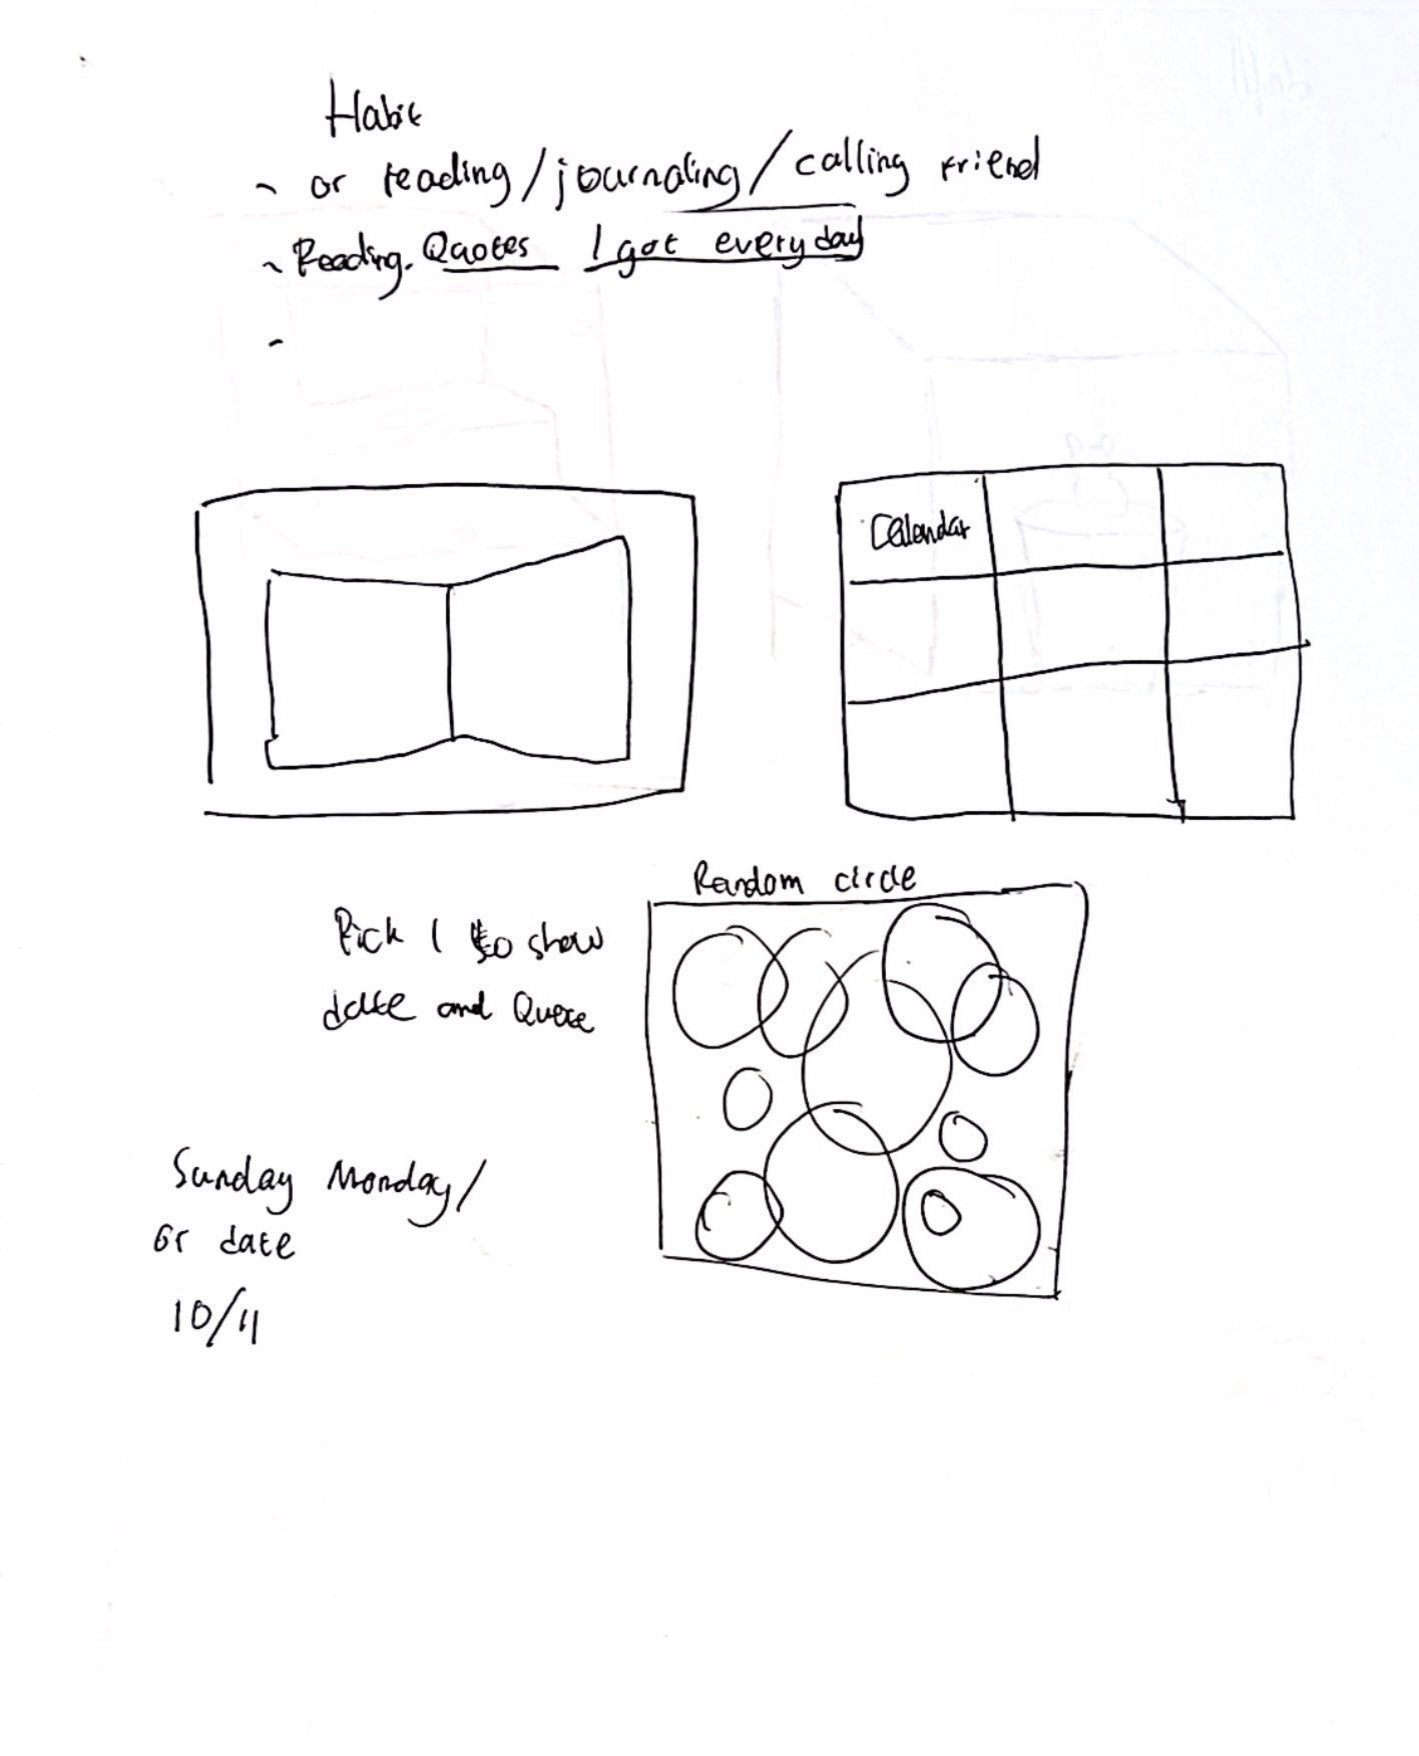 Habit
~ or reading/journaling/calling friend
~ Reading. Quotes I got everyday
-
Calendar
Random circle
Pick 1 to show
date and Quote
Sunday Monday/
Or date
10/11